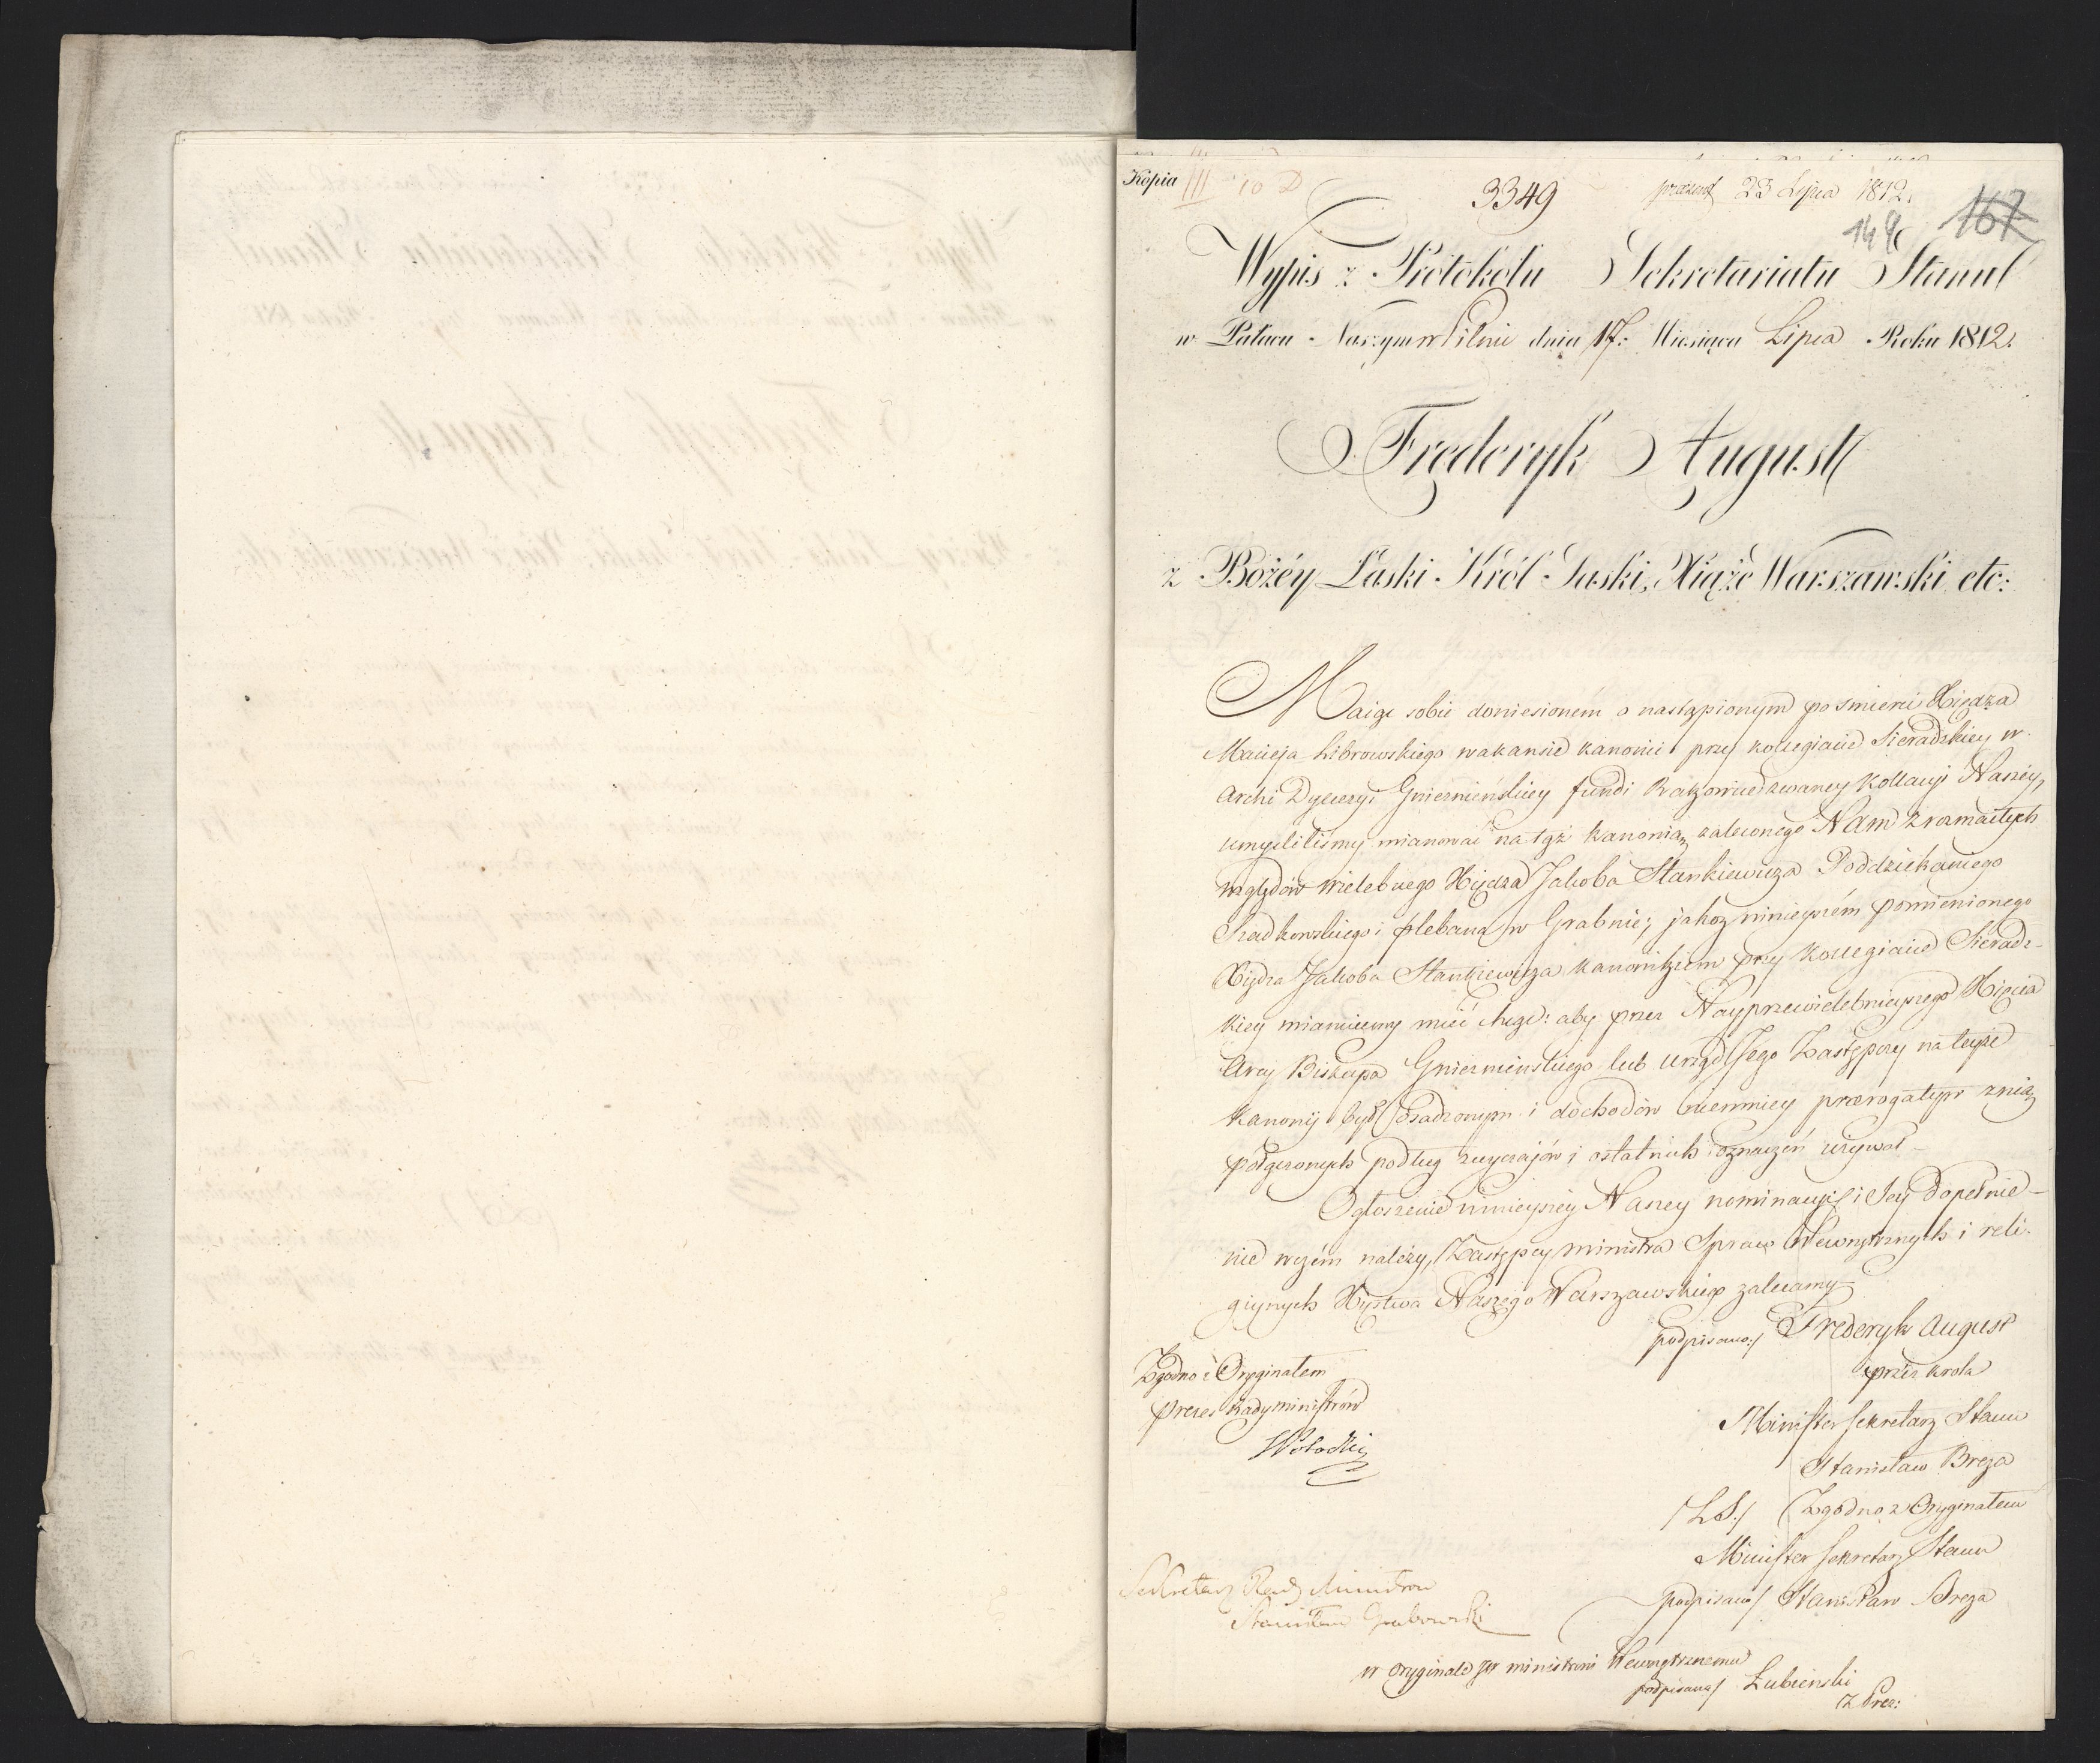 Kopia III 10 D
3349
praesent 23 Lipca 1812.
149 167
Wypis z Protokołu Sekretariatu Stanu
w Pałacu Naszym w Pilnie dnia 17: Miesiąca Lipca Roku 1812.
Frederyk August
z Bożéy Łaski Król Saski, Xiąże Warszawski etc:
Maiąc sobie doniesionem o nastąpionym po śmierci Xiędza
Macieja Librowskiego wakansie kanonii przy kollegiacie Sieradzkiey w
Archi Dyecezyi Gnieznieńskiey fundi zwaney Kollacyi Naszéy,
umyśliliśmy mianować na tęż kanonią zaleconego Nam z rozmaitych
względów wielebnego Xiędza Jakoba Stankiewicza Poddziekaniego
Szadkowskiego i plebana w Grabnie; jakoż ninieyszém pomienionego
Xiędza Jakoba Stankiewicza kanonikiem przy Kollegiacie Sieradz-
kiey mianuiemy mieć chcąc: aby przez Nayprzewielebnieyszego Xięcia
Arcy Biskupa Gnieznieńskiego lub urząd Jego Zastępczy na teyże
kanonij był osadzonym i dochodów niemniey prerogatyw z nią
połączonych podług zwyczajów i ostatnich oznaczeń używał
Ogłoszenie ninieyszéy Naszey nominacyi i Jey dopełnie-
nie w czém należy, Zastępcy ministra Spraw Wewnętrznych i reli-
giynych Xięstwa Naszego Warszawskiego zalecamy
podpisano:/ Frederyk August
przez króla
Zgodno z Oryginałem
Prezes Rady ministrów
Minister Sekretarz Stanu
Stanisław Breza
/LS./ Zgodno z Oryginałem
Minister Sekretarz Stanu
podpisano/ Stanisław Breza
Sekretarz Rady Ministrów
Stanisław Grabowski
w oryginale JW ministrowi Wewnętrznemu
podpisano/ Łubieński